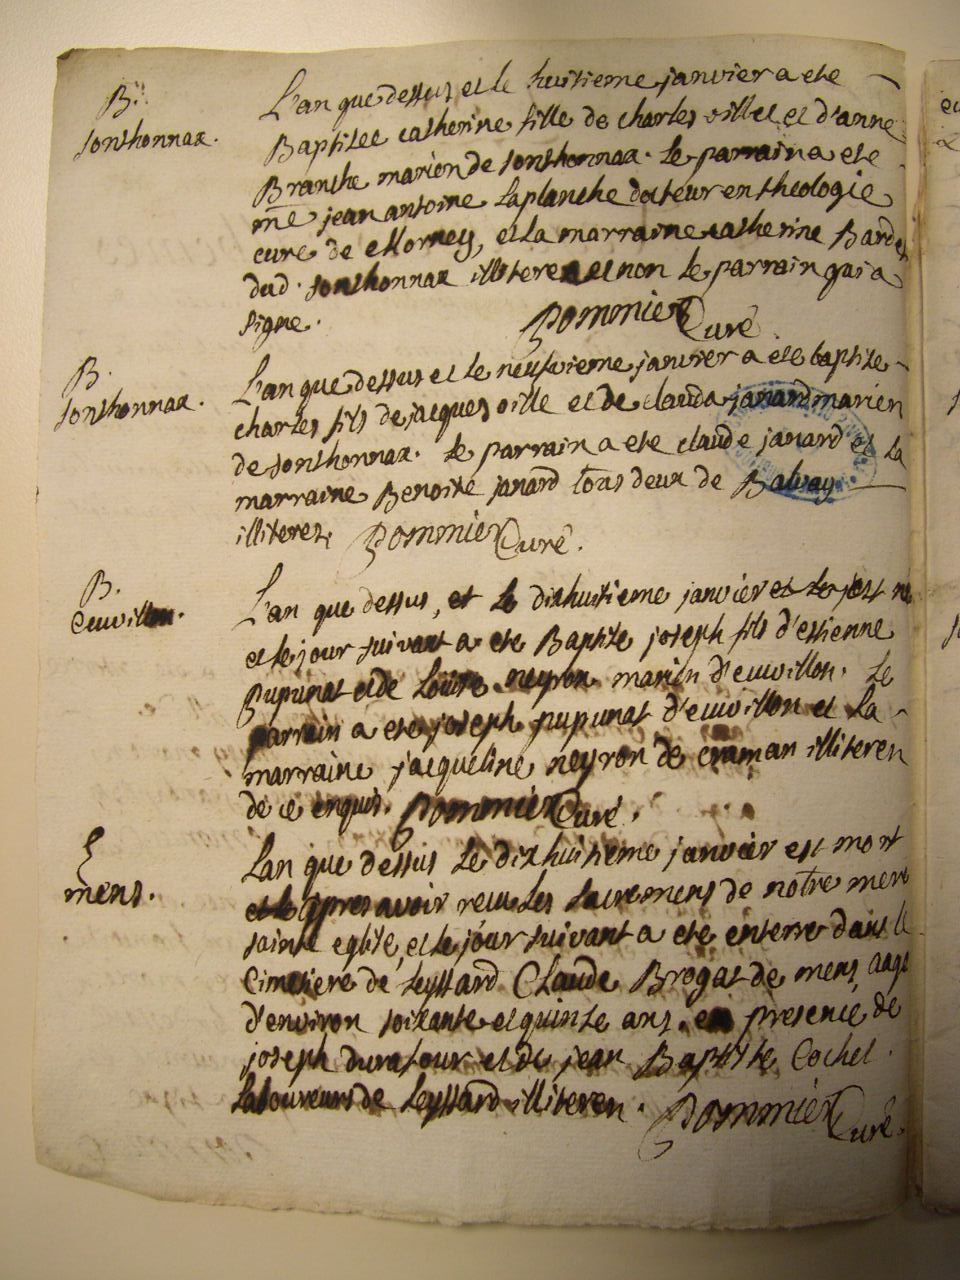 B.
sonthonnax.
L'an que dessus et le huitieme janvier a ete
Baptisee catherine fille de charles oillet et d'anne
Branche marien de sonthonnax. le parrain a ete
me jean antoine Laplanche docteur en theologie
cure de Mornay, et la marraine catherine Bardet
dud. sonthonnax illiteree et non le parrain qui a
signe. Pommier Curé
B.
sonthonnax.
L'an que dessus et le neufvieme janvier a ete baptise
charles fils de jacques oille et de clauda janard marien
de sonthonnax. le parrain a ete claude janard et la
marraine Benoite janard tous deux de Balvay
illiterez. Pommier Curé.
B.
Cuvillon.
L'an que dessus, et le dixhuitieme janvier est né
et le jour suivant a ete Baptise joseph fils d'estienne
Pupunat et de Louise neyron marien d'euvillon. Le
parrain a ete joseph pupunat d'euvillon et La
marraine jacqueline neyron de craman illiteren
de ce enquis. Pommier Curé.
mens.
Lan que dessus Le dixhuitieme janvier est mort
apres avoir recu Les sacremens de notre mere
sainte eglise, et le jour suivant a ete enterre dans le
Cimetiere de Leyssard Claude Brogat de mens, aagé
d'environ soixante et quinze ans, en presence de
joseph duratour et de jean Baptiste Cochet
Laboureurs de Leyssard illiteren. Pommier Curé.